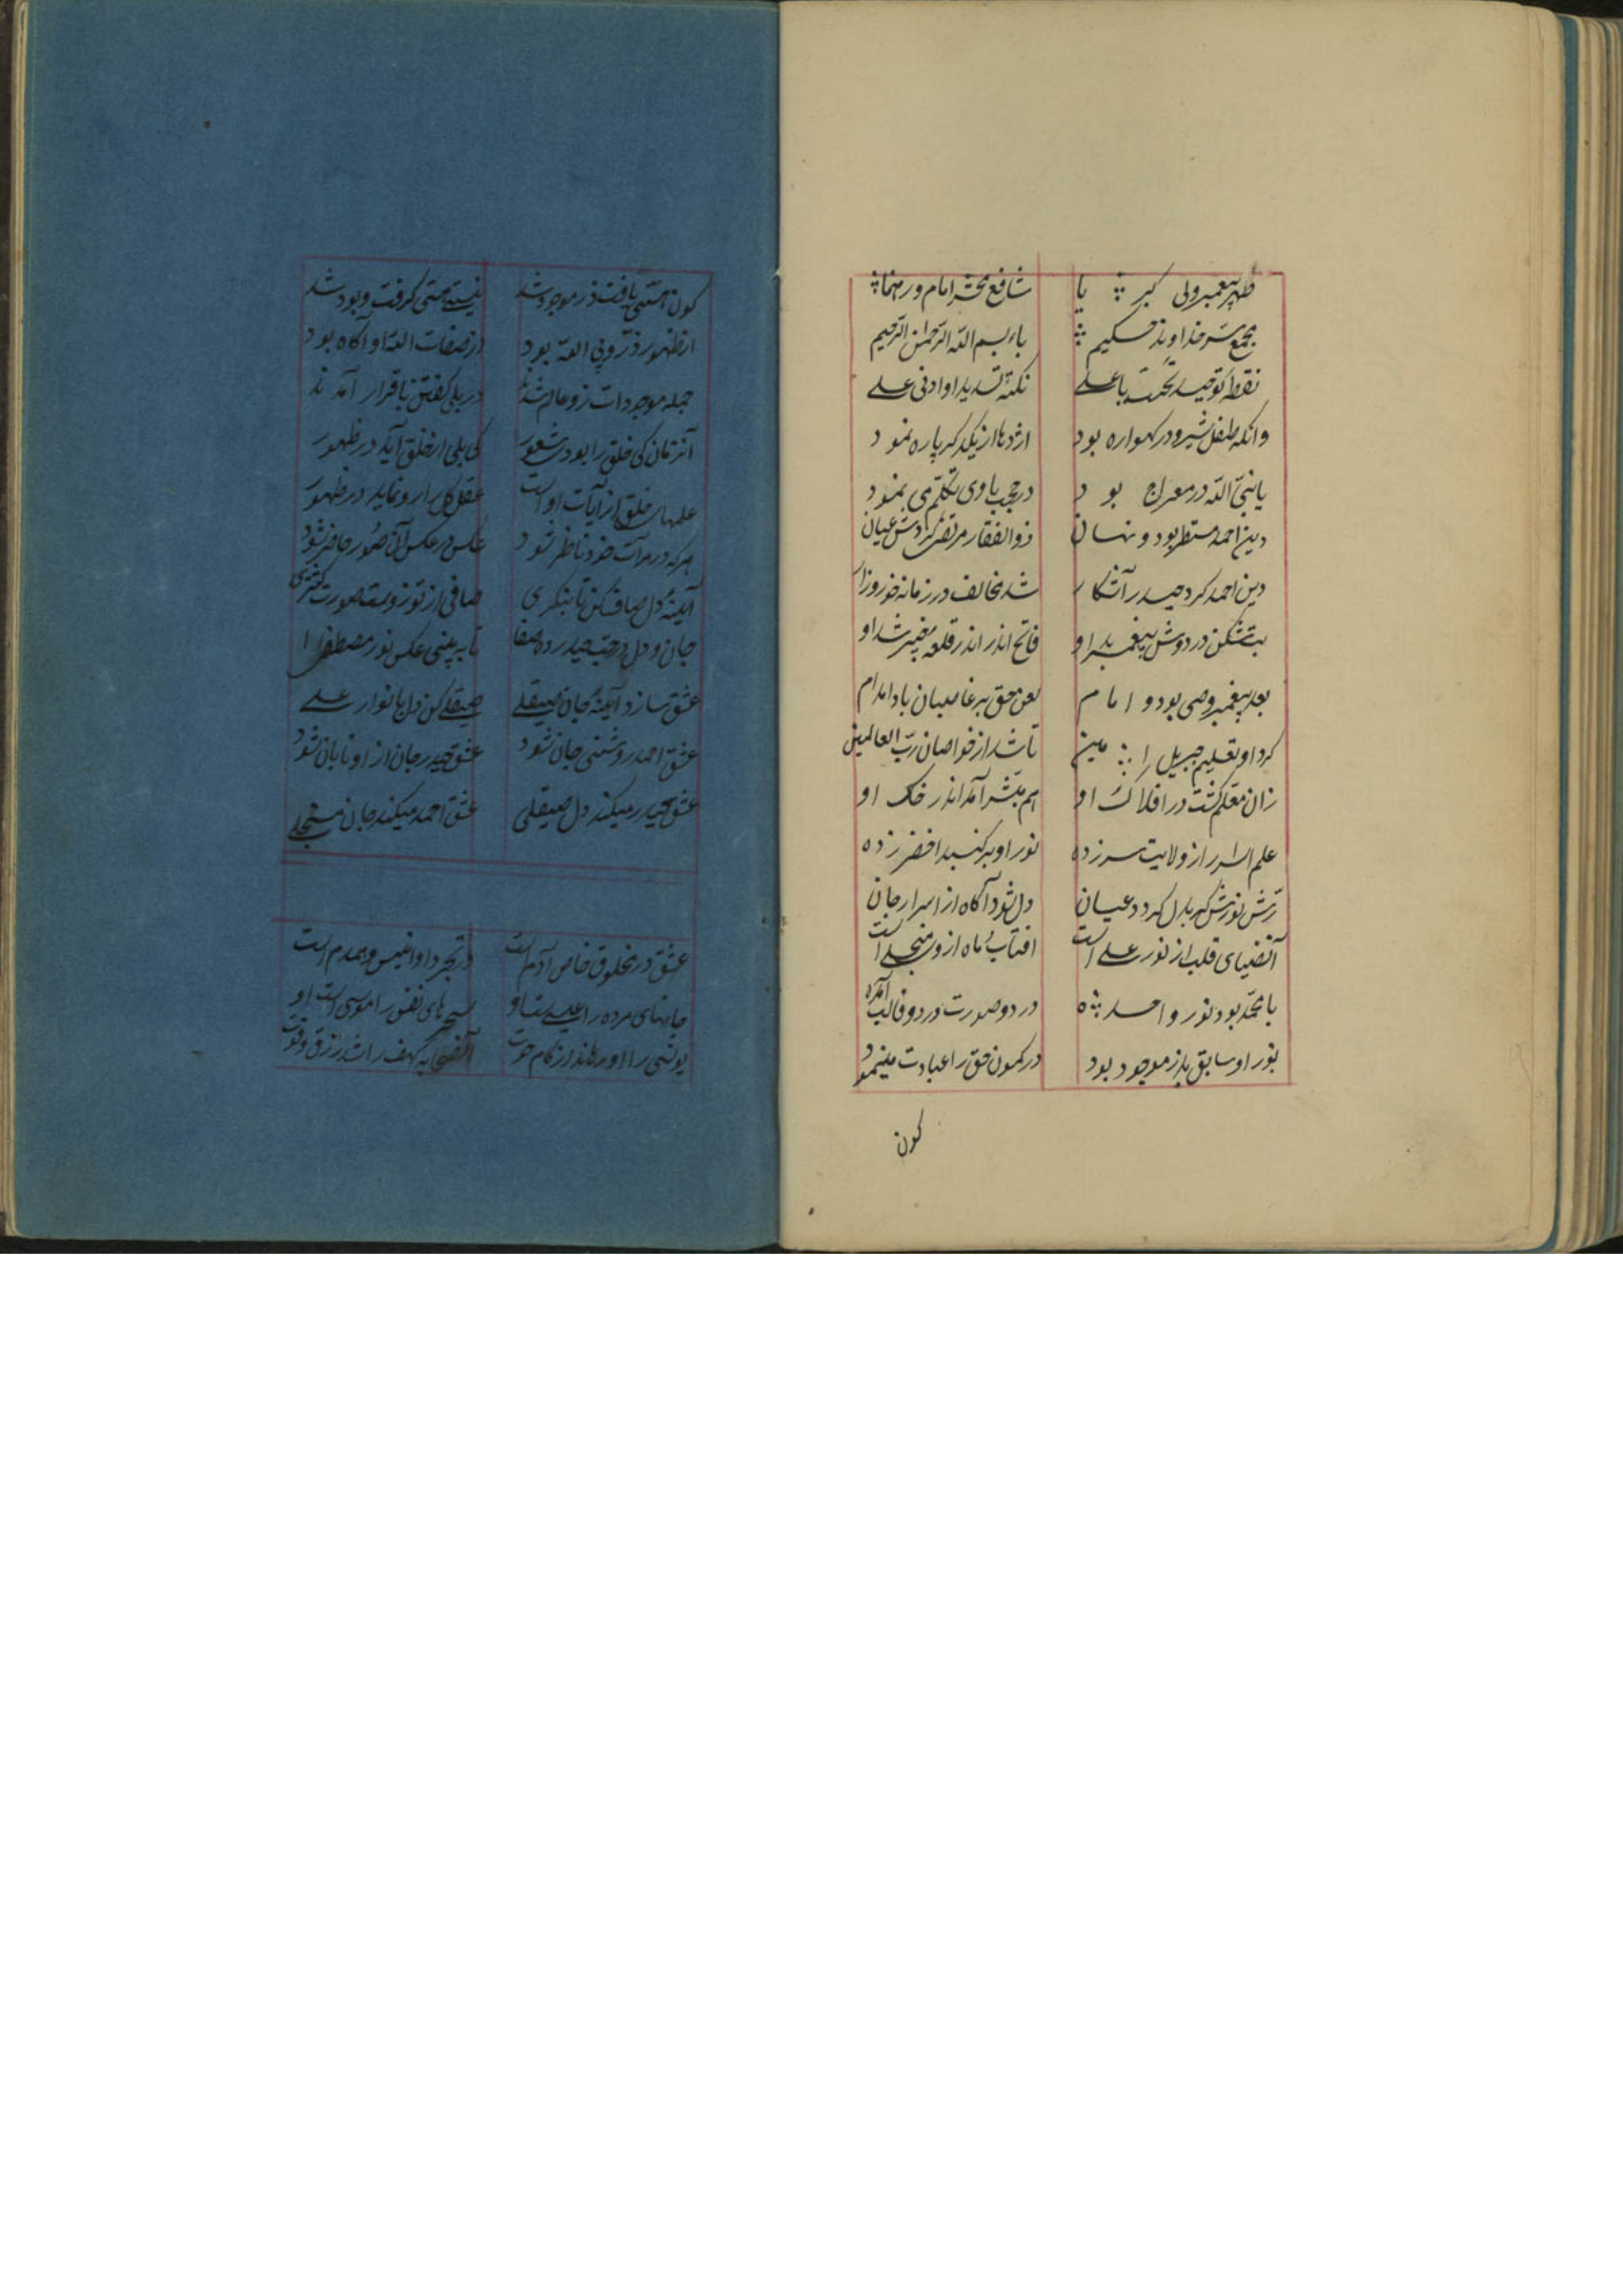 ظهر پیغمبر ولی کبریا شافع محشر امام و رهنما
مجمع سر خداوند حکیم باء بسم الله الرحمن الرحیم
نقطه توحید تحت با علی نکته تسدید او ادنی علی
وانکه طفل شیر و در کهواره بود اژدها از یکدکر پاره نمود
با نبی الله در معراج بود در حجب با وی تکلم می نمود
دین احمد مستطر بود و نهان ذوالفقار مرتضی کردش عیان
دین احمد کرد حیدر آشکار شد مخالف در زمانه خوروزار
بتشکن در دوش پیغمبر بد او فاتح اندر اندر قلعه خیبر شد او
بعد پیغمبر وصی بود و امام لعن حق بر غاصبان باد امدام
کرد او تعلیم جبریل را مین تا شد از خواصان رب العالمین
زان معلم کشت در افلاک او هم مبشر آمد اندر خاک او
علم اسرار از ولایت سر زده نور او بر کنبد اخضر زده
رش نورش کر بدل کردد عیان دل شود آکاه از اسرار جان
آنضیای قلب از نور علی است افتاب و ماه از و منجلی است
با محمد بود نور واحده در دو صورت در دو قالب آمده
نور او سابق بد از موجود بود در کمون حق را عبادت مینمود
کون
کون هستی یافت ذر موجود شد نیستی هستی کرفت و بود شد
از ظهور ذر و بی الله بود از صفات الله او آکاه بود
جمله موجودات زو عالم شدند در بلی کفتن باقرار آمدند
آنزمان کی خلق را بود شعور کی بلی از خلق آید در ظهور
علمهای خلق از آیات او است عقل کل را رو نماید در ظهور
هرکه در مرآت خود ناظر شود عکس در عکس آن صور حاضر شود
آینه دل صاف کن تا بنکری صافی از تو زوست صورت کستری
جان و دل در حب حیدر ده صفا تا به بینی عکس نور مصطفی را
عشق سازد آینه جان صیقلی صیقلی کن دل بانوار علی
عشق احمد روشنی جان شود عشق حیدر جان از او تابان شود
عشق حیدر میکند دل صیقلی عشق احمد میکند جان منجلی
عشق در مخلوق خاص آدم است در تجرد او انیس و همدم است
جانهای مرده را عیسی است او سحرهای نفس را موسی است او
یونسی را او رهاند از کام حوت آنصحابه کهف را شد رزق و قوت